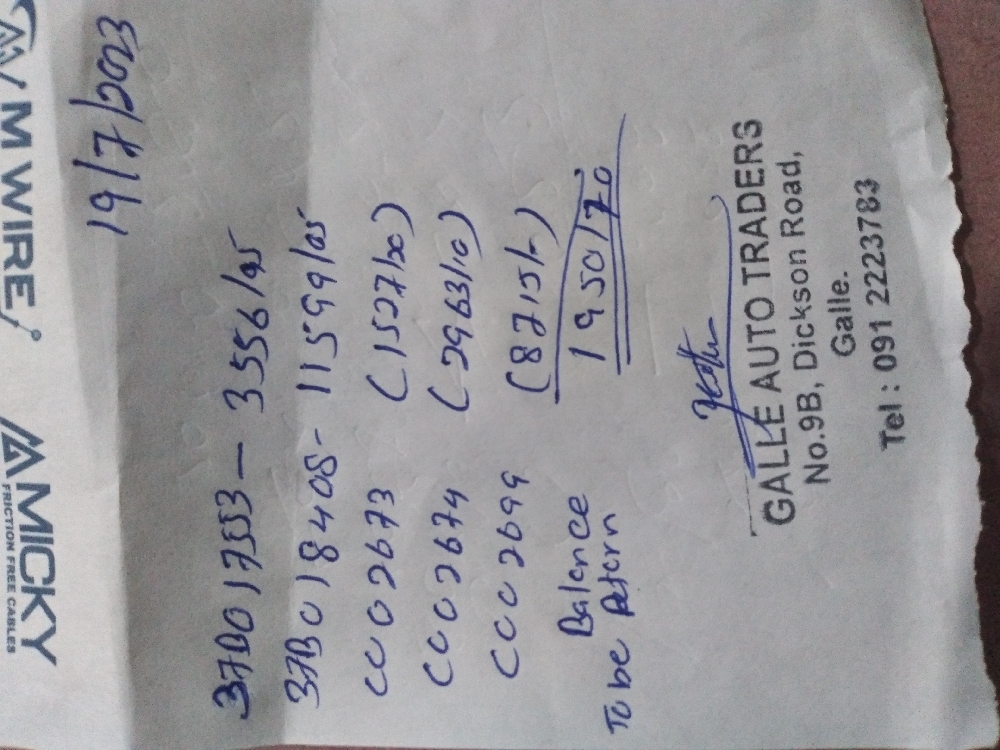 MICKY
FRICTION FREE CABLES
M WIRE
19/7/2023
37B017553 - 3556/95
37B018408 - 11599/05
CC02673 (1527/20)
CC02674 (2963/10)
CC02699 (8715/-)
Balance 1950/70
To be Retern
GALLE AUTO TRADERS
No.9B, Dickson Road,
Galle.
Tel : 091 2223783